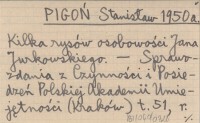 PIGOŃ Stanisław 1950a.
Kilka rysów osobowości Jana
Jurkowskiego. — Sprawo-
zdania z Czynności i Posie-
dzeń Polskiej Akademii Umie-
jętności (Kraków) t. 51, r.